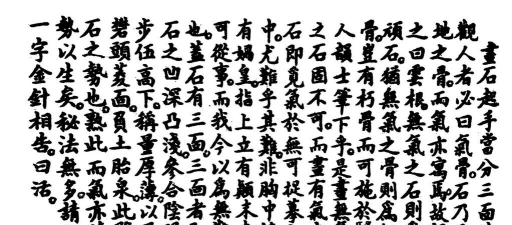 畫石起手當分三面
觀人者必曰氣骨。石乃
地之骨。而氣亦寓焉。故
之曰雲根。無氣之石則
頑石。猶無氣之骨則為
骨。豈有朽骨而可施於
人韻士筆下乎。是畫無
之石固不可。而畫有氣
石即覓氣於無可捉摹
中。尤難乎其難。非胸中
有媧皇。指上立有顛末
可從事。而我今以為無
也。蓋石有三面。三面者
石之凹深凸淺。參合陰
步伍高下。稱量厚薄。以
礬頭菱面。負土胎泉。此
石之勢也。熟此而氣亦
勢以生矣。秘法無多。請
一字金針相告。曰活。